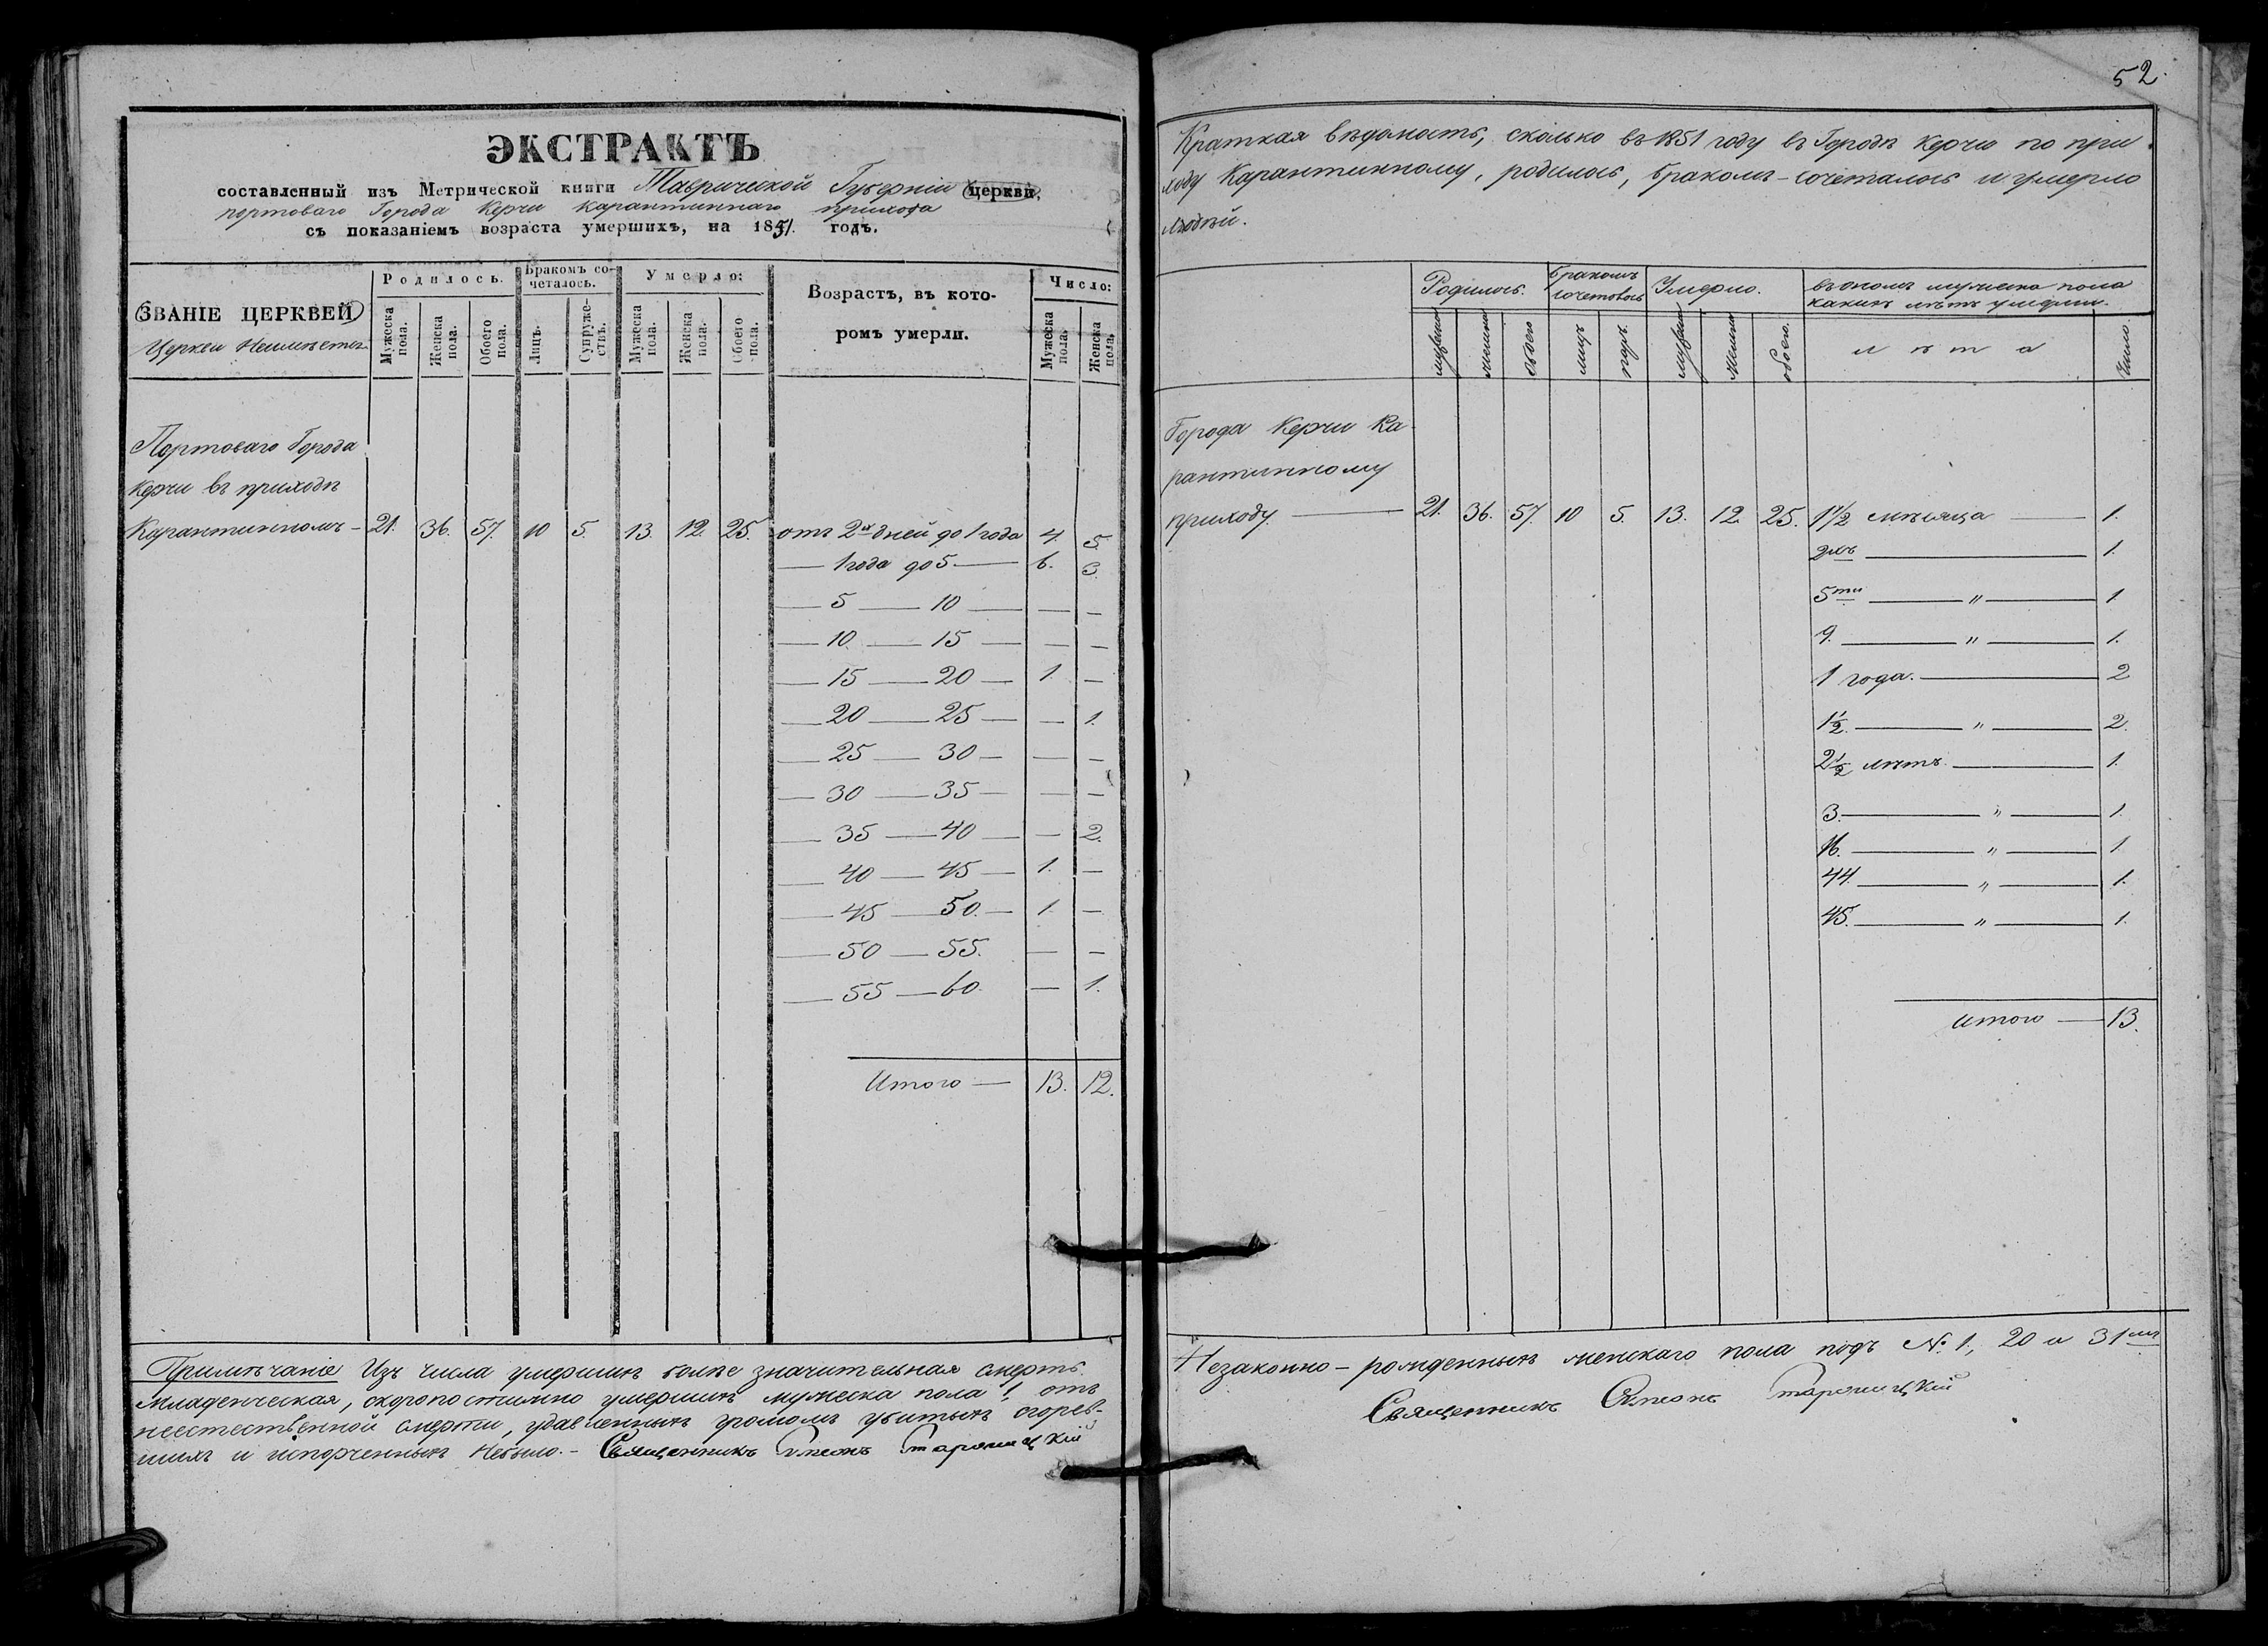 ЭКСТРАКТЪ
составленный изъ Метрической книги Таврической Губерніи церкви,
портоваго Города Керчи карантиннаго прихода
съ показаніемъ возраста умершихъ, на 1851. годъ.
ЗВАНІЕ ЦЕРКВЕЙ
Церкви Неимѣетъ
Родилось.
Бракомъ со-
четалось.
Умерло:
Возрастъ, въ кото-
ромъ умерли.
Число:
Мужеска пола.
Женска пола.
Обоего пола.
Лицъ.
Супруже-
ствъ.
Мужеска пола.
Женска пола.
Обоего пола.
Мужеска пола.
Женска пола.
Портоваго Города
Керчи въ приходѣ
Карантинномъ – 21. 36. 57. 10 5. 13. 12. 25. отъ 2хъ дней до 1 года 4. 5.
— 1 года до 5 — 6. 3.
— 5 — 10 — — —
— 10. — 15 — — —
— 15 — 20 — 1. —
— 20 — 25 — — 1.
— 25 — 30 — — —
— 30 — 35 — — —
— 35 — 40 — — 2.
— 40 — 45 — 1. —
— 45 — 50. — 1. —
— 50 — 55. — —
— 55 — 60. — 1.
Итого — 13. 12.
Примѣчаніе Изъ числа умершихъ болѣе значительная смерть
младенческая, скоропостижно умершихъ мужеска пола 1, отъ
неестественной смерти, удавленныхъ громомъ убитыхъ сгорев-
шихъ и испорченныхъ небыло. – Священникъ Симеонъ
52.
Краткая вѣдомость, сколько въ 1851 году въ Городѣ Керчи по при
ходу Карантинному, родилось, бракомъ – сочеталось и умерло
людей.
Родилось.
бракомъ
сочеталось
Умерло.
въ ономъ мужеска пола
какихъ лѣтъ умерли.
мужеска
женска
обоего
лицъ
паръ.
мужеска
женска
обоего.
лѣта
Число.
Города Керчи Ка
рантинному
приходу — 21. 36. 57. 10 5. 13. 12. 25. 1 1/2 мѣсяца — 1.
2хъ — 1.
5ти — " — 1.
9. — " — 1.
1 года. — 2
1 1/2. — " — 2.
2 1/2 лѣтъ. — 1.
3. — " — 1.
16. — " — 1
44. — " — 1.
45. — " — 1.
Итого — 13.
Незаконно – рожденныхъ женскаго пола подъ №. 1, 20 и 31мъ
Священникъ Симеонъ